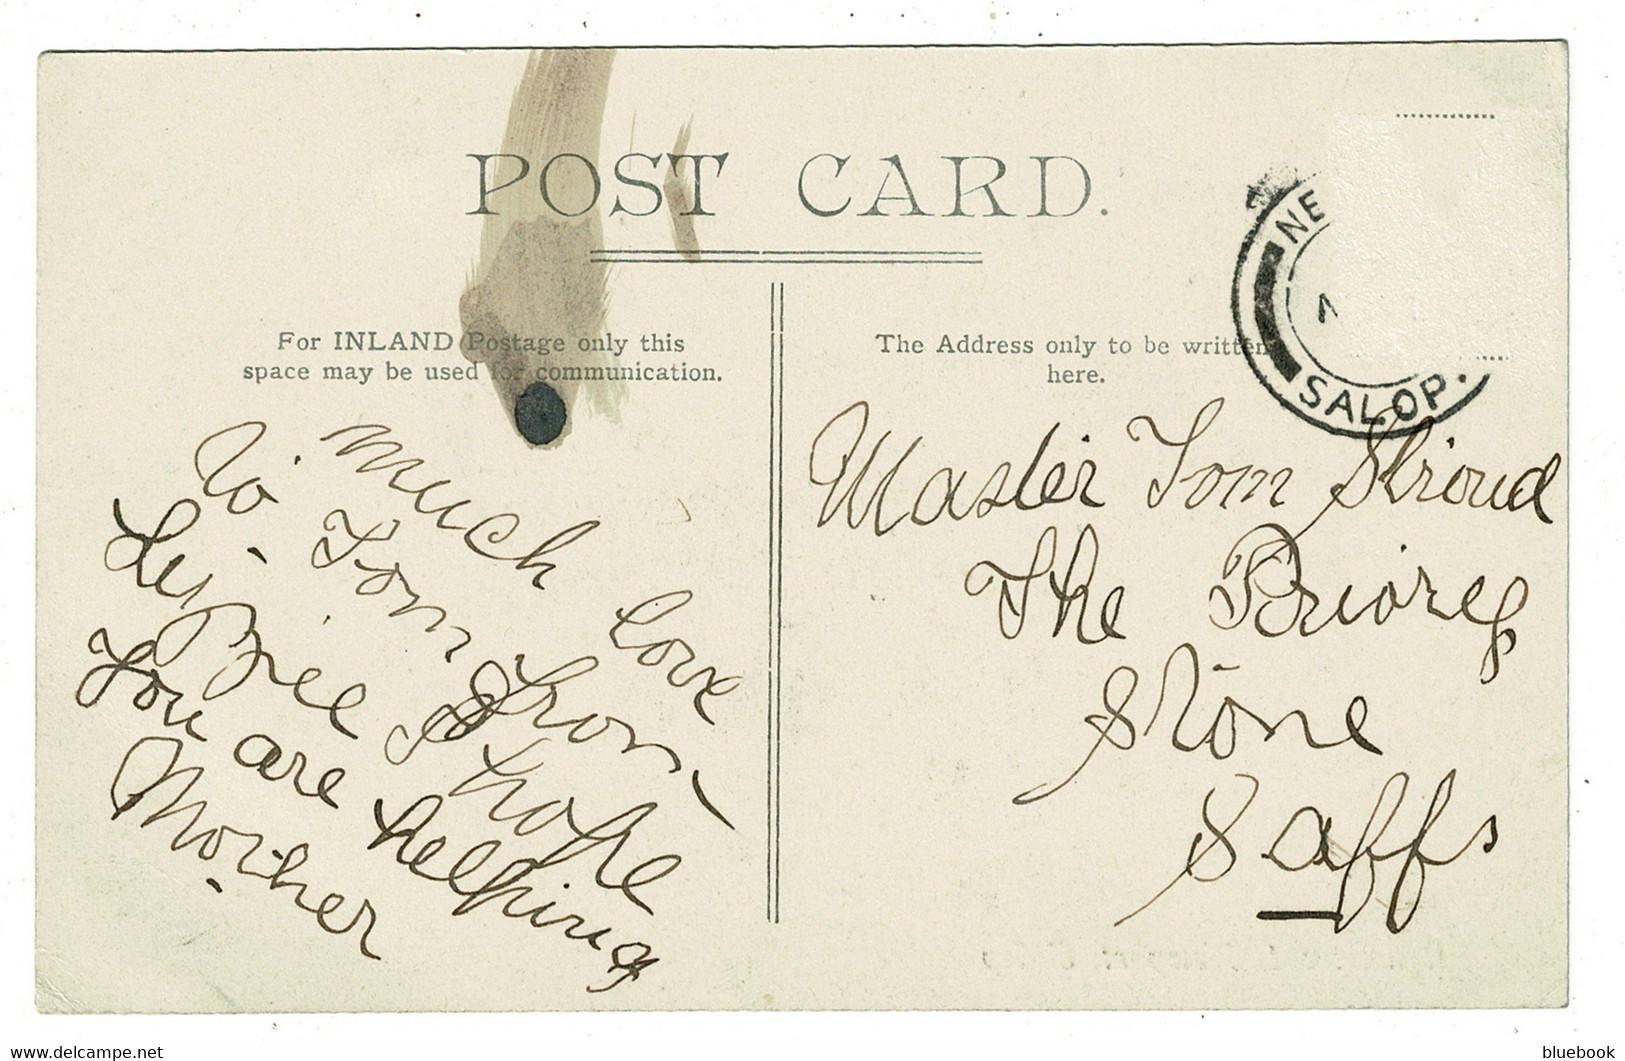 POST CARD.
For INLAND Postage only this
space may be used for communication.
The Address only to be written
here.
NE
SALOP.
much love
to Tom from
I hope
You are helping
Mother
Master Tom Stroud
The Priory
Stone
Saffs
bluebook